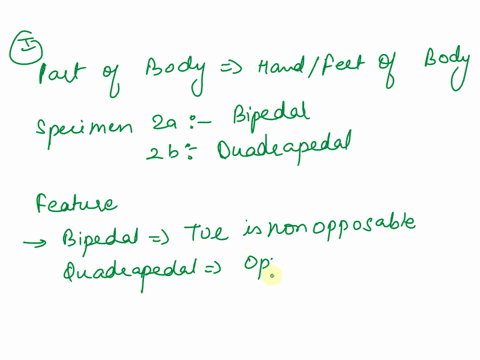 I
Part of Body => Hand/Feet of Body
Specimen 2a :- Bipedal
2b :- Quadeapedal
Feature
→ Bipedal => Toe is non opposable
Quadeapedal => Op